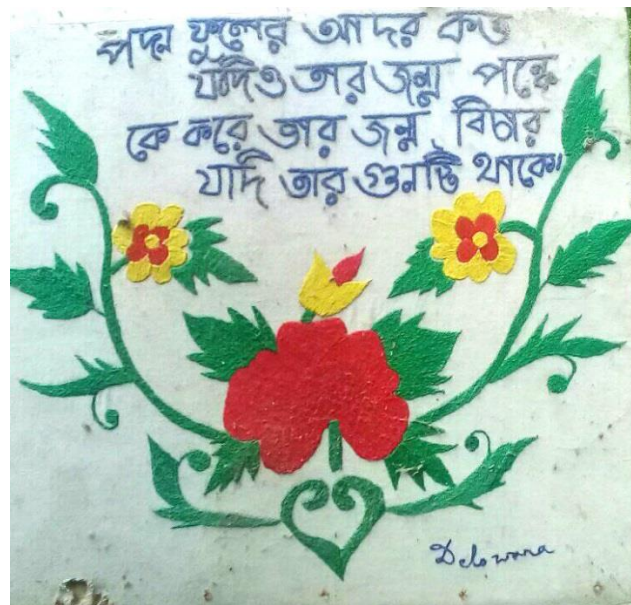 পদ্ম ফুলের আদর কত
যদিও তার জন্ম পঙ্কে
কে করে তার জন্ম বিচার
যদি তার গুনটি থাকে॥
Delowara